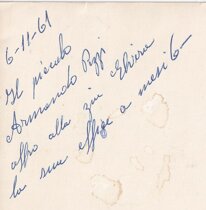 6-11-61
Il piccolo
Armando Pizzi
offro alla zia Elvira
la sua effige a mesi 6-